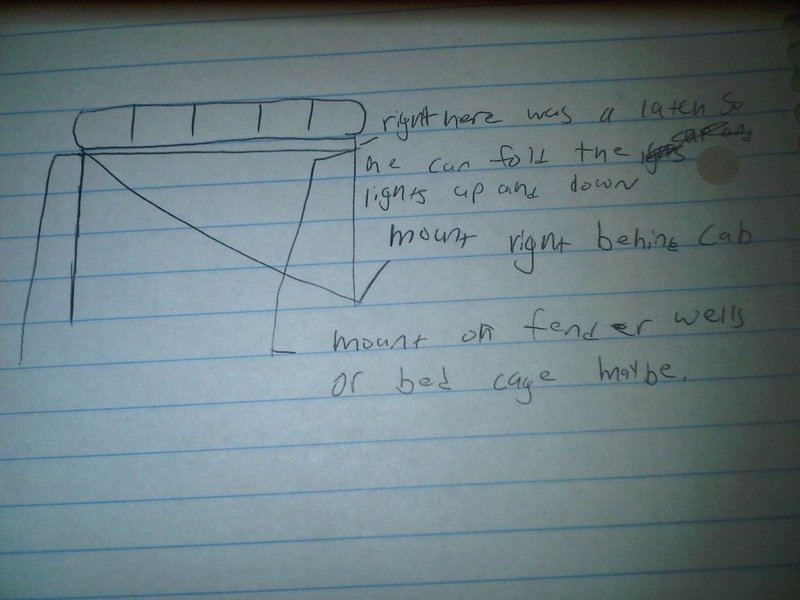 right here was a latch so
he can fold the
lights up and down
mount right behine cab
mount on fender wells
or bed cage maybe.